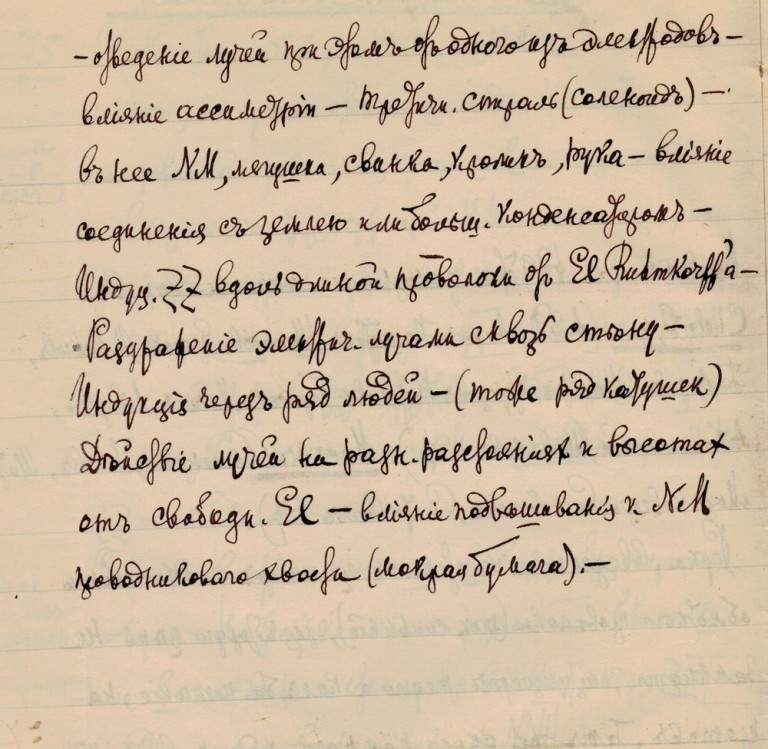 – отведеніе лучей при этомъ отъ одного изъ электродовъ –
вліяніе ассиметріи – третичн. спираль (соленоидъ) –
въ нее NM, лягушка, свинка, кроликъ, рука – вліяніе
соединенія съ землею или больш. конденсаторомъ –
Индук. ZZ вдоль длиной проволоки от El Ruhmkorff'а –
Раздраженіе электрич. лучами сквозь стѣну –
Индукція черезъ ряд людей – (тоже ряд катушек)
Дѣйствіе лучей на разн. разстояніях и высотах
отъ свободн. El – вліяніе подвѣшиванія к NM
проводникового хвоста (мокрая бумага). –